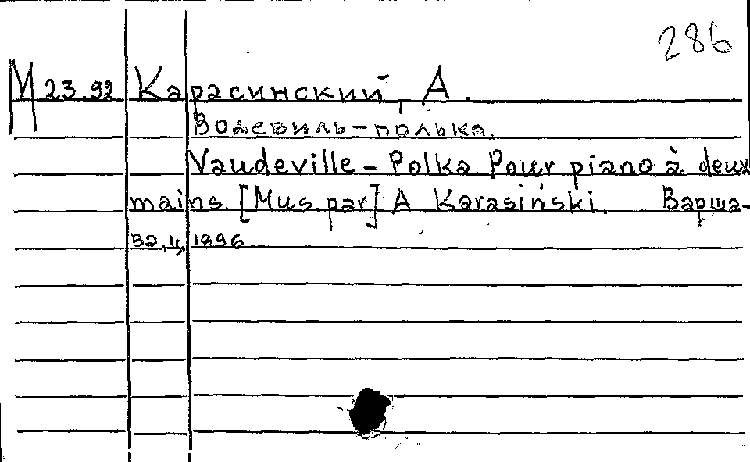 286
М 23.92 Карасинский, А.
Водевиль-полька.
Vaudeville - Polka Pour piano à deux
mains. [Mus. par] A Karasiński. Варша-
ва, 1896